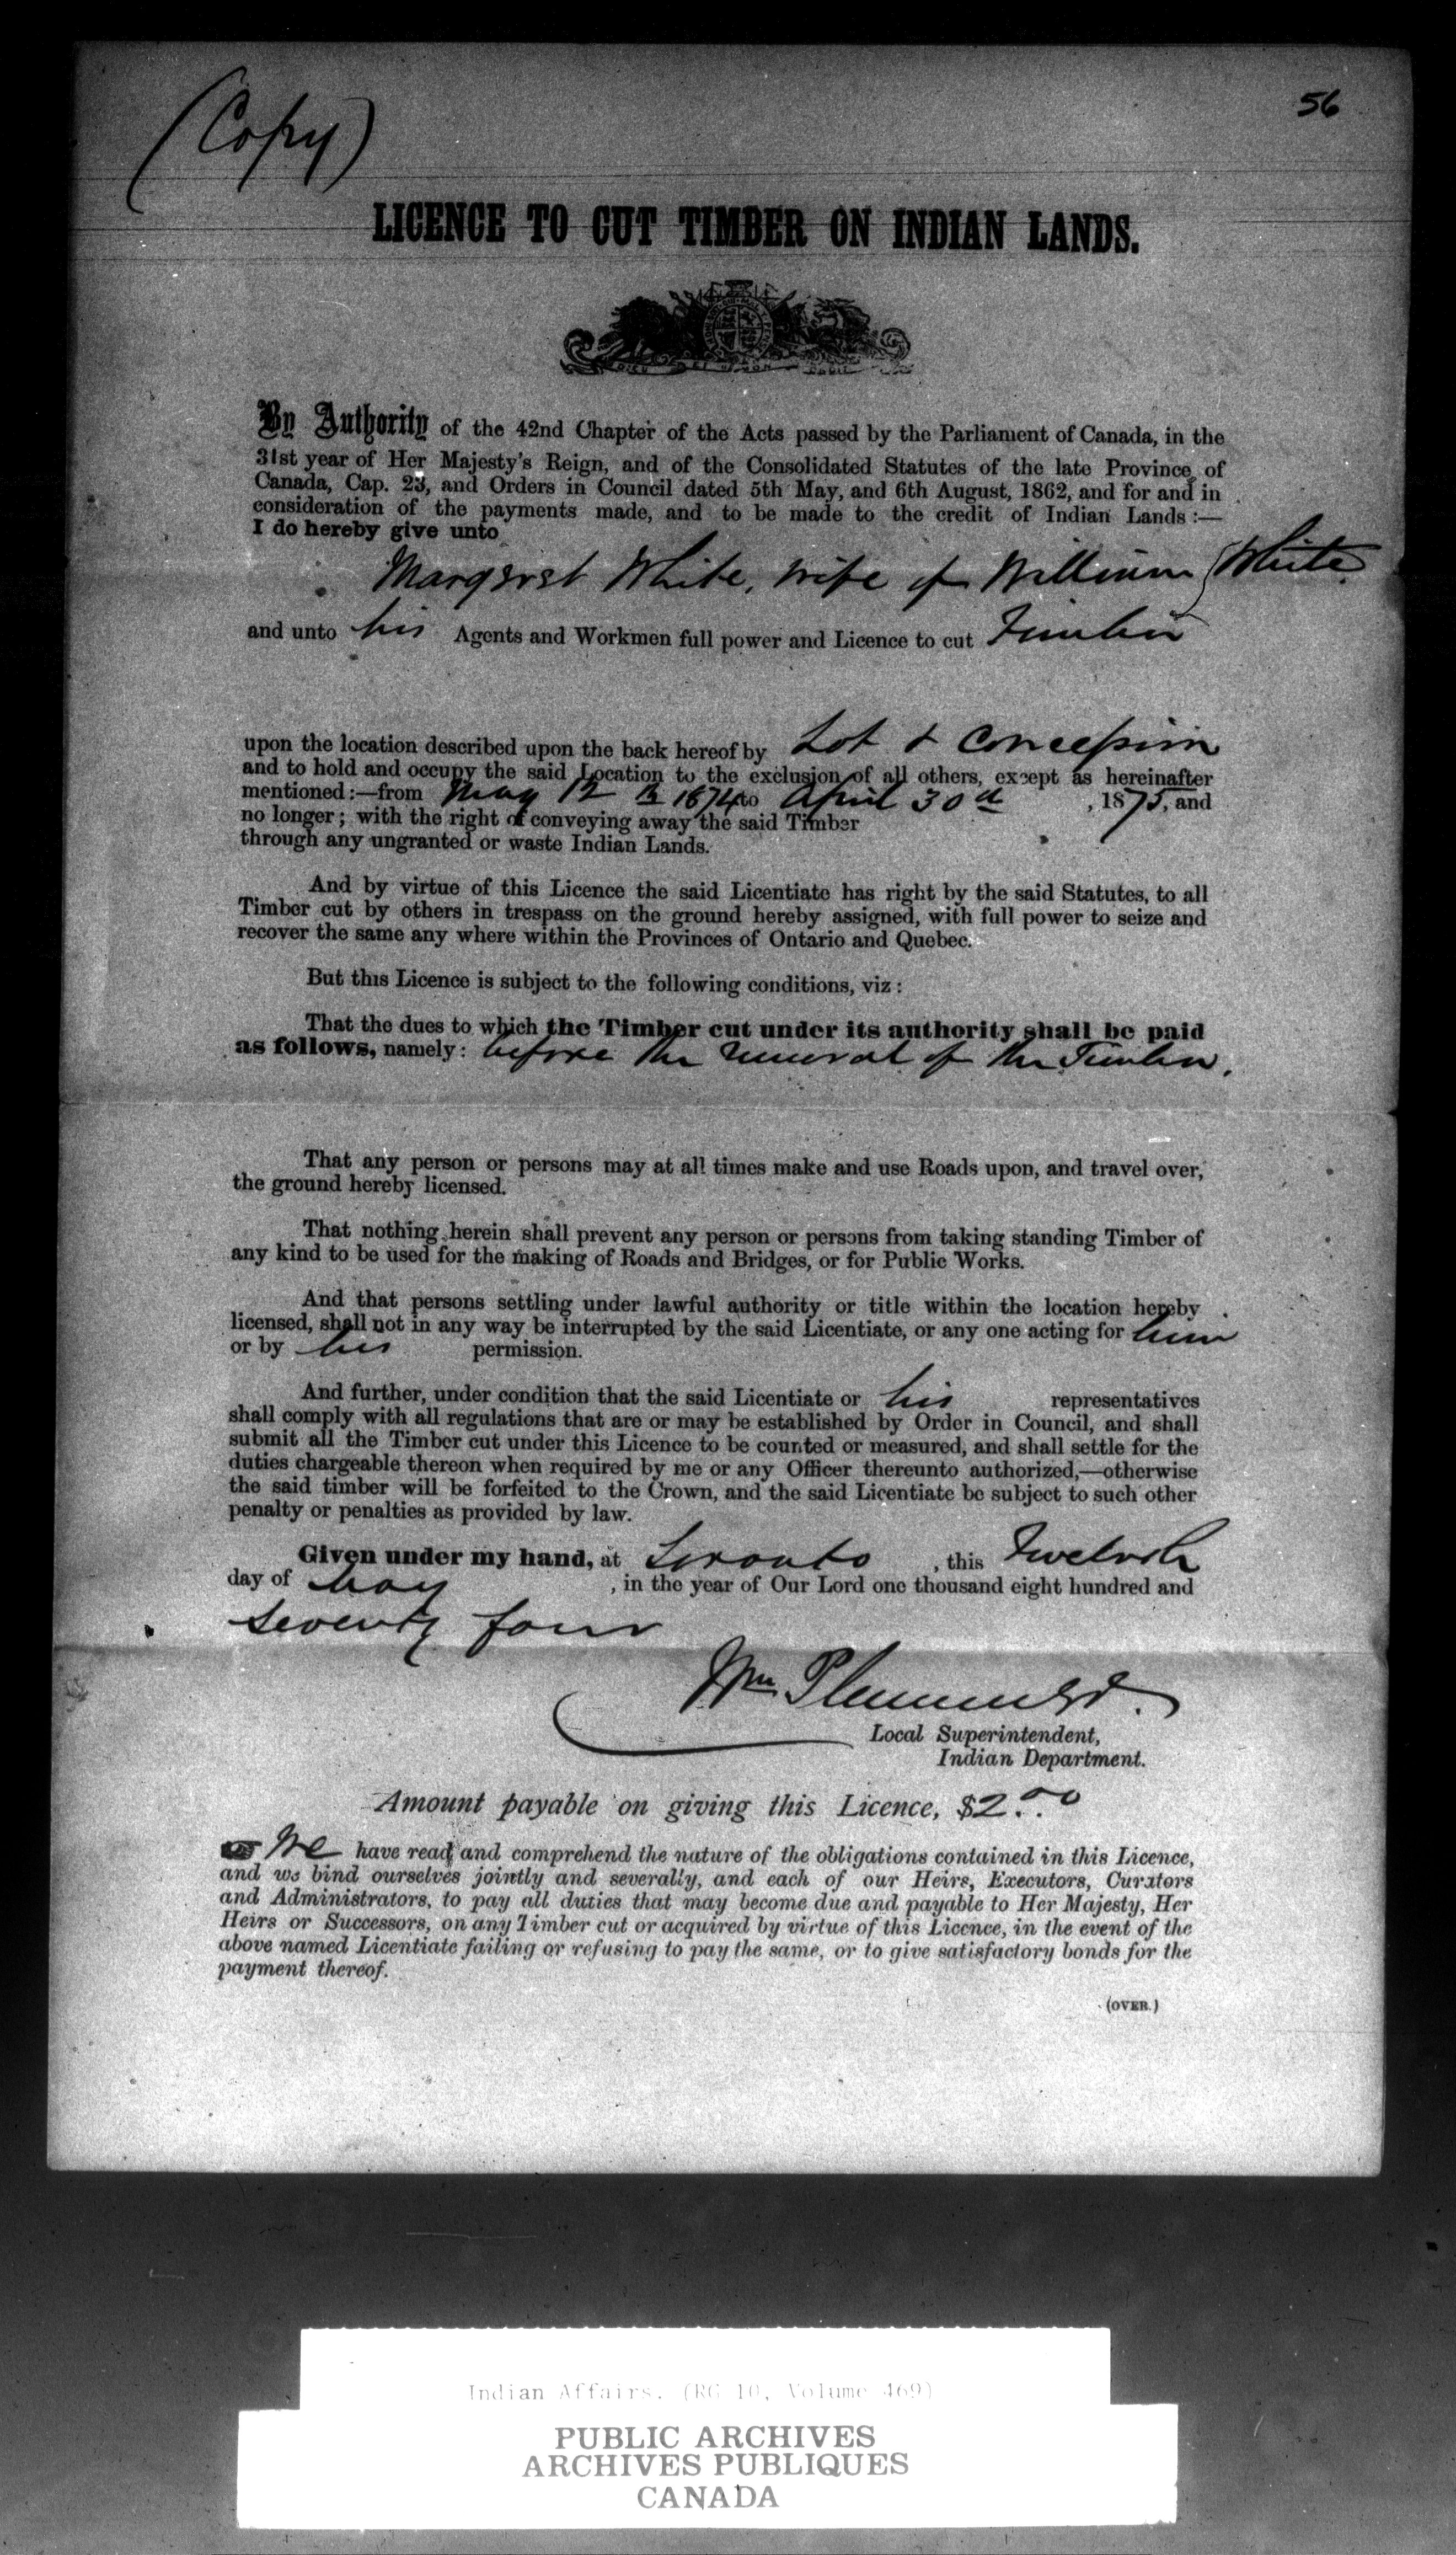 (Copy)
56
LICENCE TO CUT TIMBER ON INDIAN LANDS.
By Authority of the 42nd Chapter of the Acts passed by the Parliament of Canada, in the
31st year of Her Majesty's Reign, and of the Consolidated Statutes of the late Province of
Canada, Cap. 23, and Orders in Council dated 5th May, and 6th August, 1862, and for and in
consideration of the payments made, and to be made to the credit of Indian Lands :—
I do hereby give unto
Margaret White, wife of William White
and unto his Agents and Workmen full power and Licence to cut Timber
upon the location described upon the back hereof by Lot & Concession
and to hold and occupy the said Location to the exclusion of all others, except as hereinafter
mentioned :—from May 12th 1874 to April 30th , 1875, and
no longer ; with the right of conveying away the said Timber
through any ungranted or waste Indian Lands.
And by virtue of this Licence the said Licentiate has right by the said Statutes, to all
Timber cut by others in trespass on the ground hereby assigned, with full power to seize and
recover the same any where within the Provinces of Ontario and Quebec.
But this Licence is subject to the following conditions, viz :
That the dues to which the Timber cut under its authority shall be paid
as follows, namely : before the removal of the Timber.
That any person or persons may at all times make and use Roads upon, and travel over,
the ground hereby licensed.
That nothing herein shall prevent any person or persons from taking standing Timber of
any kind to be used for the making of Roads and Bridges, or for Public Works.
And that persons settling under lawful authority or title within the location hereby
licensed, shall not in any way be interrupted by the said Licentiate, or any one acting for him
or by his permission.
And further, under condition that the said Licentiate or his representatives
shall comply with all regulations that are or may be established by Order in Council, and shall
submit all the Timber cut under this Licence to be counted or measured, and shall settle for the
duties chargeable thereon when required by me or any Officer thereunto authorized,—otherwise
the said timber will be forfeited to the Crown, and the said Licentiate be subject to such other
penalty or penalties as provided by law.
Given under my hand, at Toronto , this Twelvth
day of May , in the year of Our Lord one thousand eight hundred and
Seventy four
Wm Plummer.
Local Superintendent,
Indian Department.
Amount payable on giving this Licence, $2.00
We have read and comprehend the nature of the obligations contained in this Licence,
and we bind ourselves jointly and severally, and each of our Heirs, Executors, Curators
and Administrators, to pay all duties that may become due and payable to Her Majesty, Her
Heirs or Successors, on any Timber cut or acquired by virtue of this Licence, in the event of the
above named Licentiate failing or refusing to pay the same, or to give satisfactory bonds for the
payment thereof.
(OVER.)
Indian Affairs. (RG 10, Volume 469)
PUBLIC ARCHIVES
ARCHIVES PUBLIQUES
CANADA